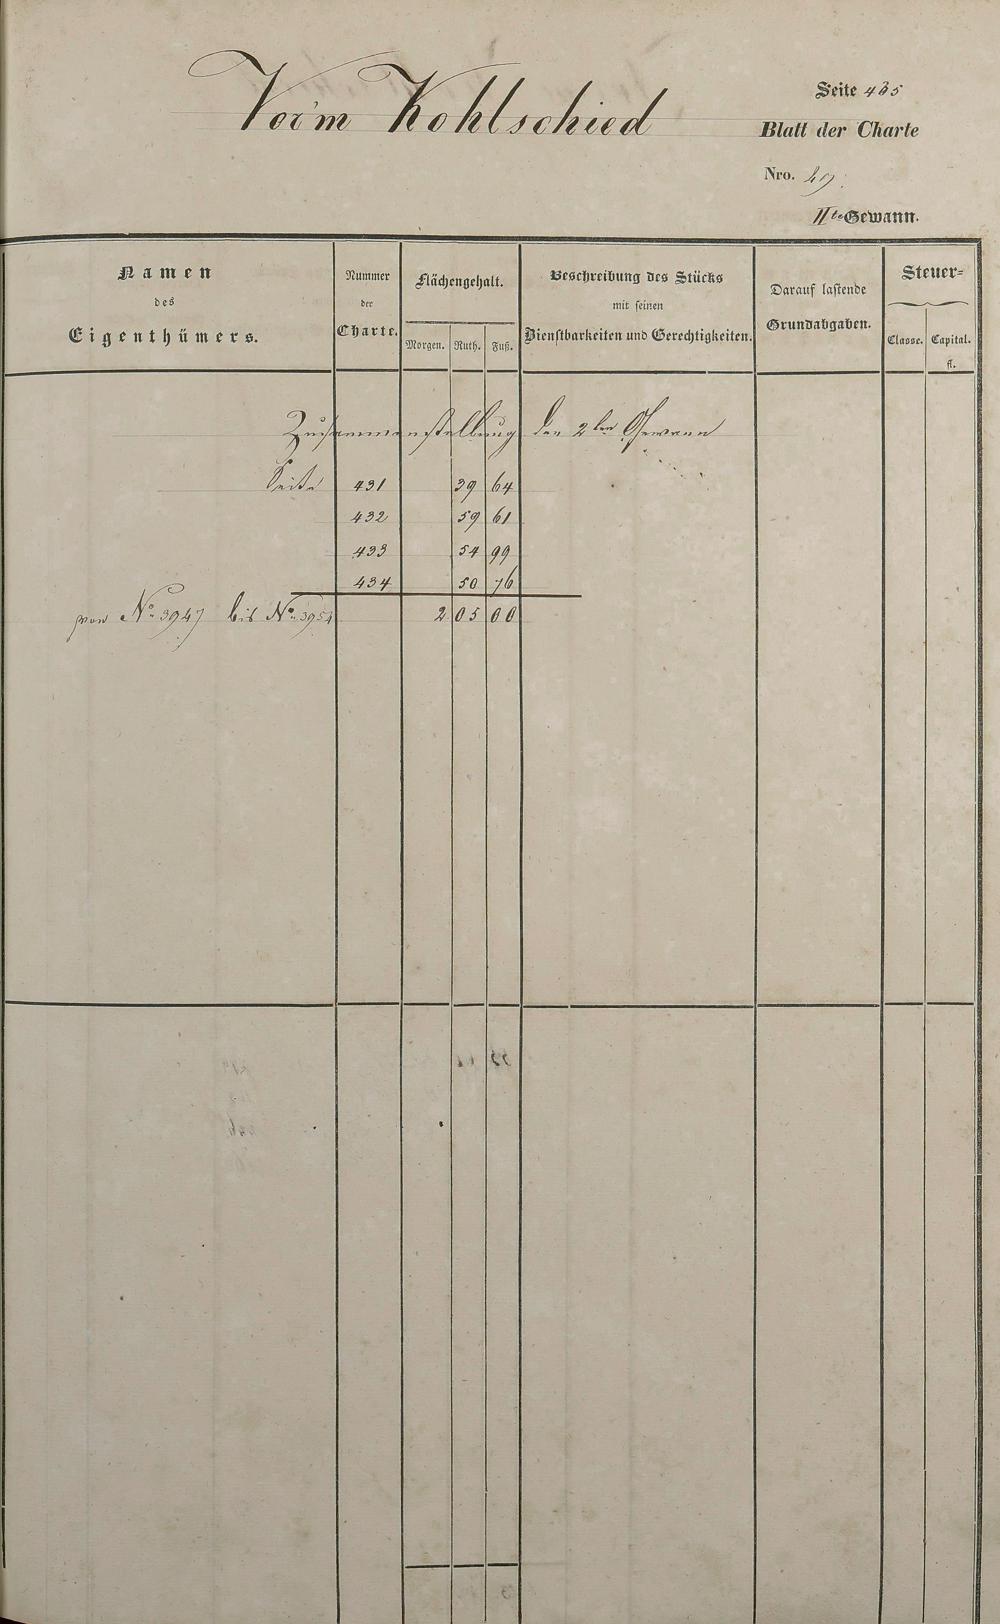 Vor'm Kohlschied
Seite 435
Blatt der Charte
Nro. 49.
IIte Gewann.
Namen
des
Eigenthümers.
Nummer
der
Charte.
Flächengehalt.
Morgen. Ruth. Fuß.
Beschreibung des Stücks
mit seinen
Dienstbarkeiten und Gerechtigkeiten.
Darauf lastende
Grundabgaben.
Steuer-
Classe. Capital.
fl.
Zusammenstellung der 2ten Gewann
Seite 431 39 64
432 59 61
433 54 99
434 50 76
von No. 3947 bis No. 3954 2 05 00